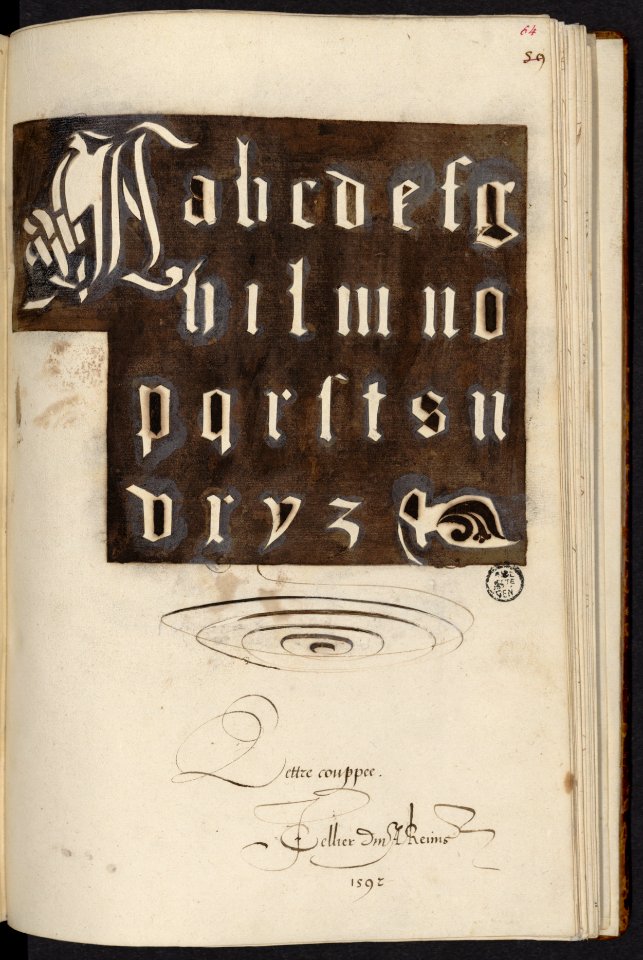 64
59
A a b c d e f g
h i l m n o
p q r ſ t s u
v x y z
Lettre couppee.
Tellier Reims
1592